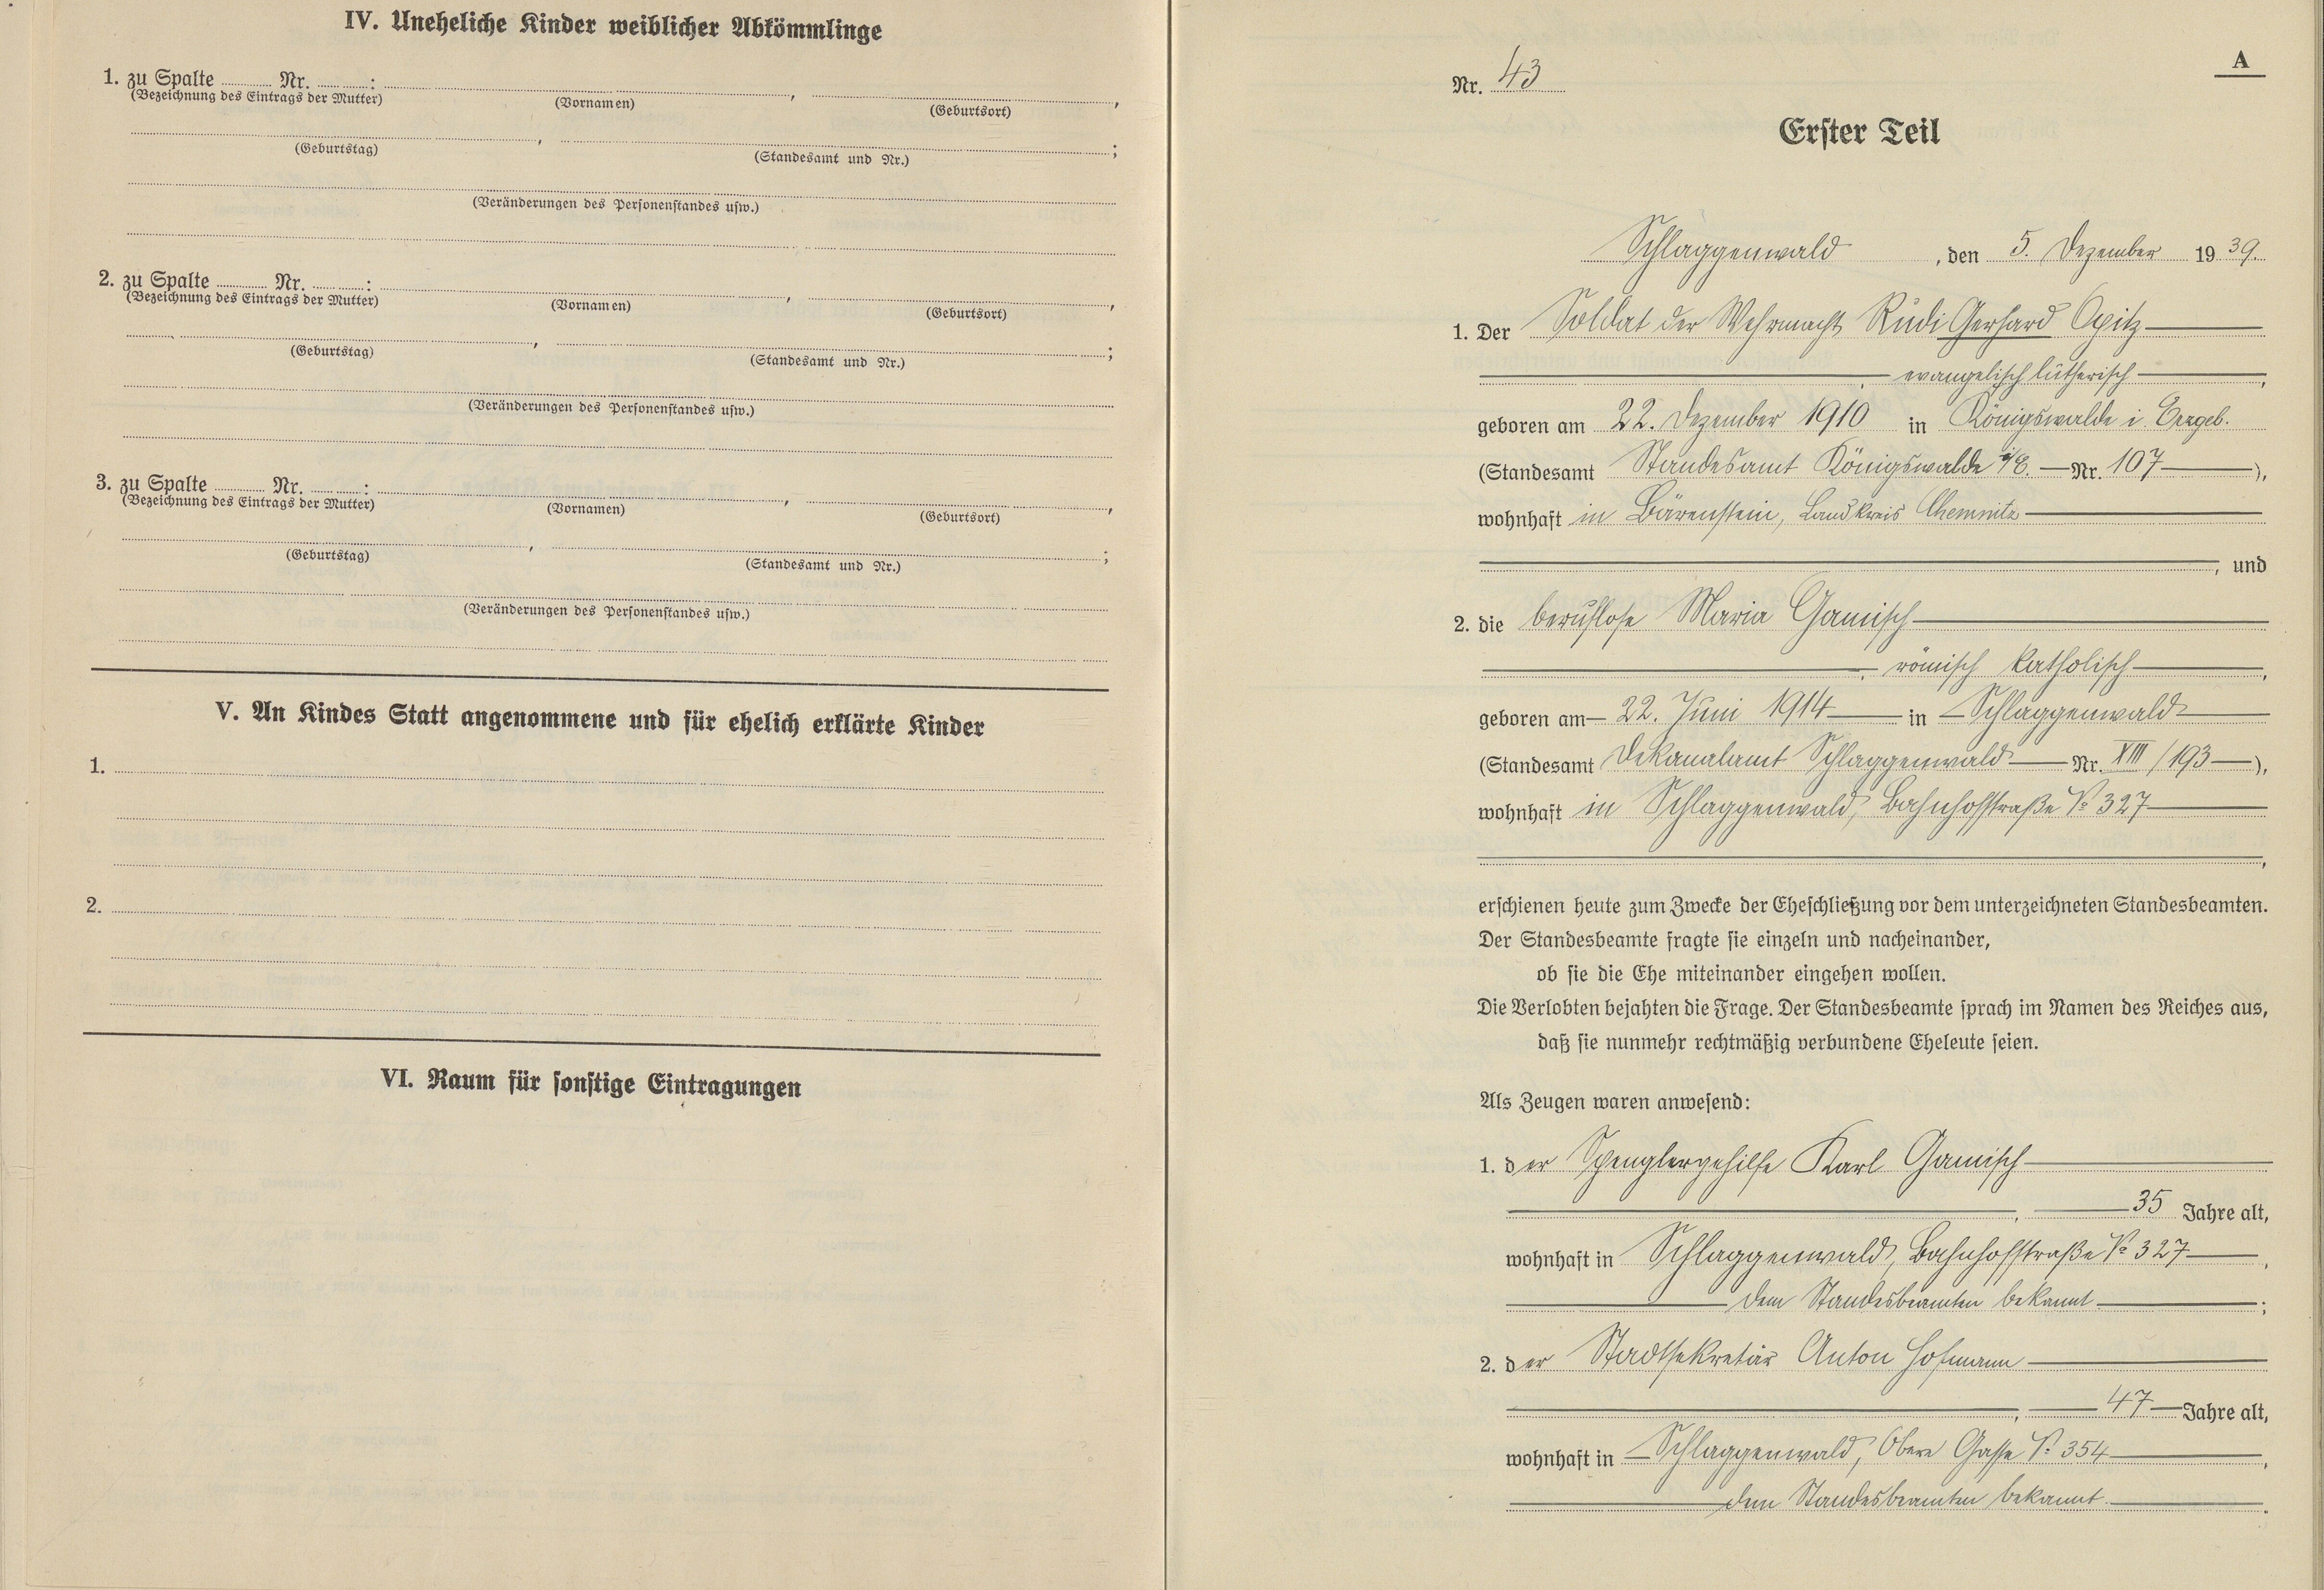 IV. Uneheliche Kinder weiblicher Abkömmlinge
1. zu Spalte ........ Nr. ........:
(Bezeichnung des Eintrags der Mutter) (Vornamen) , (Geburtsort) ,
(Geburtstag) , (Standesamt und Nr.) ;
(Veränderungen des Personenstandes usw.)
2. zu Spalte ........ Nr. ........:
(Bezeichnung des Eintrags der Mutter) (Vornamen) , (Geburtsort) ,
(Geburtstag) , (Standesamt und Nr.) ;
(Veränderungen des Personenstandes usw.)
3. zu Spalte ........ Nr. ........:
(Bezeichnung des Eintrags der Mutter) (Vornamen) , (Geburtsort) ,
(Geburtstag) , (Standesamt und Nr.) ;
(Veränderungen des Personenstandes usw.)
V. An Kindes Statt angenommene und für ehelich erklärte Kinder
1.
2.
VI. Raum für sonstige Eintragungen
A
Nr. 43
Erster Teil
Schlaggenwald, den 5. Dezember 1939.
1. Der Soldat der Wehrmacht Rudi Gerhard Opitz
, evangelisch lutherisch ,
geboren am 22. Dezember 1910 in Königswalde i. Erzgeb.
(Standesamt Standesamt Königswalde i/E. Nr. 107 ),
wohnhaft in Bärenstein, Landkreis Chemnitz
, und
2. die berufslose Maria Gamisch
, römisch katholisch ,
geboren am 22. Juni 1914 in Schlaggenwald
(Standesamt Dekanalamt Schlaggenwald Nr. XIII/193 ),
wohnhaft in Schlaggenwald, Bahnhofstraße No 327
,
erschienen heute zum Zwecke der Eheschließung vor dem unterzeichneten Standesbeamten.
Der Standesbeamte fragte sie einzeln und nacheinander,
ob sie die Ehe miteinander eingehen wollen.
Die Verlobten bejahten die Frage. Der Standesbeamte sprach im Namen des Reiches aus,
daß sie nunmehr rechtmäßig verbundene Eheleute seien.
Als Zeugen waren anwesend:
1. der Spenglergehilfe Karl Gamisch
, 35 Jahre alt,
wohnhaft in Schlaggenwald, Bahnhofstraße No 327 ,
dem Standesbeamten bekannt ;
2. der Stadtsekretär Anton Hofmann
, 47 Jahre alt,
wohnhaft in Schlaggenwald, Obere Gasse No 354 ,
dem Standesbeamten bekannt .